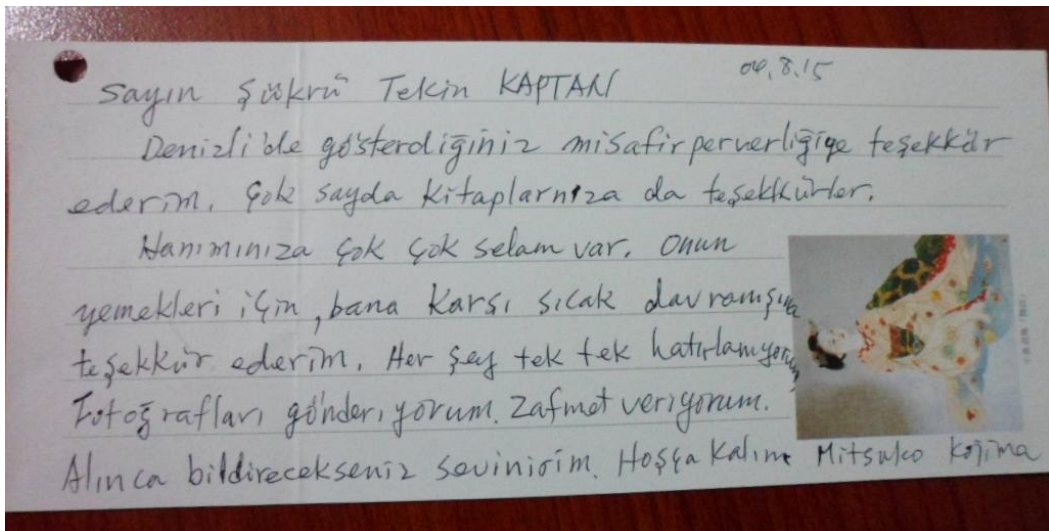 04.8.15
Sayın Şükrü Tekin KAPTAN
Denizli'de gösterdiğiniz misafirperverliğiçe teşekkür
ederim. Çok sayda kitaplarnıza da teşekkürler.
Hanımınıza çok çok selam var. Onun
yemekleri için, bana karşı sıcak davramşına
teşekkür ederim. Her şey tek tek hatırlamyorum,
Fotoğrafları gönderiyorum. Zafmet veriyorum.
Alınca bildirecekseniz sevinirim. Hoşça kalın. Mitsuko Kojima